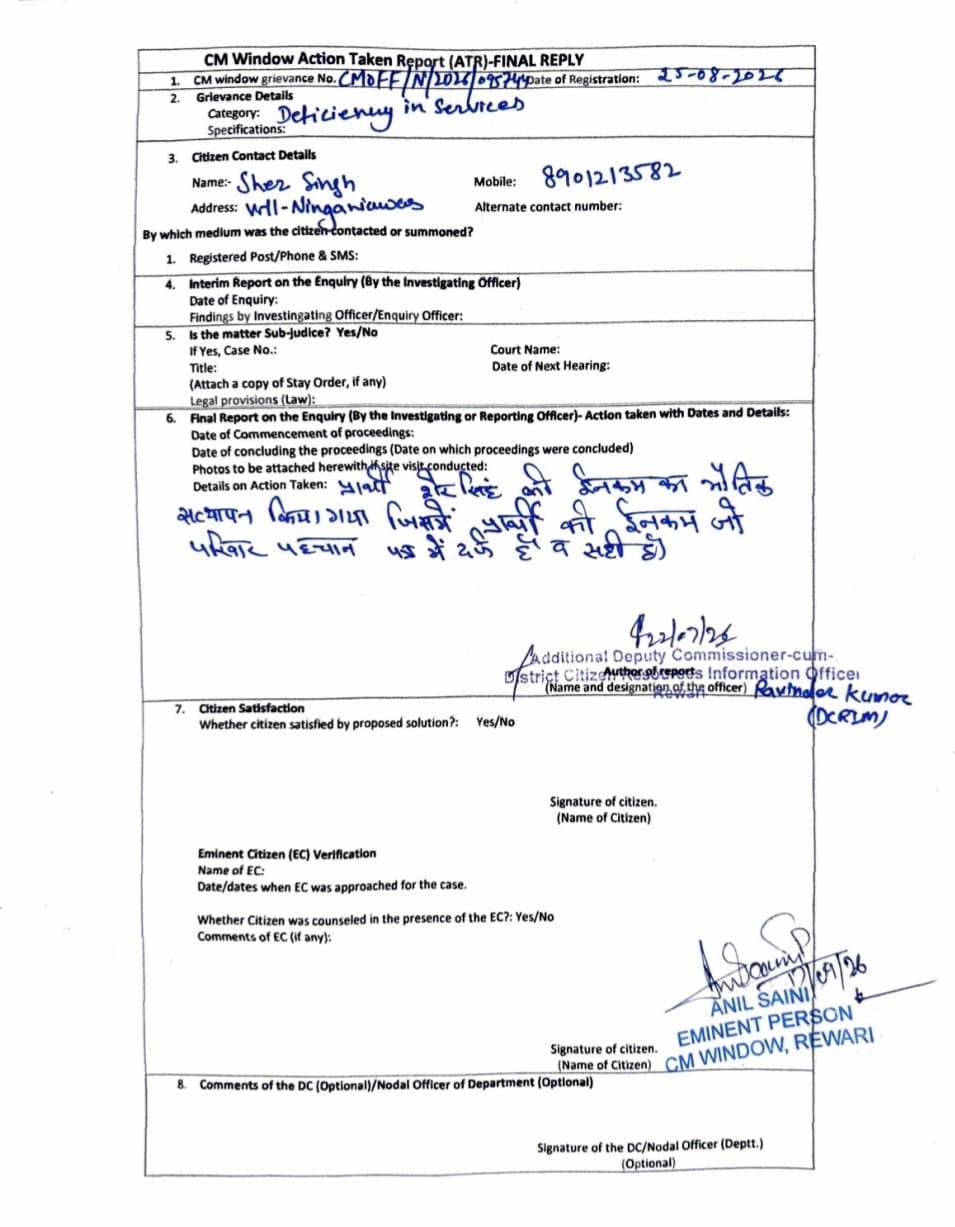 CM Window Action Taken Report (ATR)-FINAL REPLY
1. CM window grievance No. CMOFF/N/2026/095744 Date of Registration: 25-08-2026
2. Grievance Details
Category: Deficiency in Services
Specifications:
3. Citizen Contact Details
Name:- Sher Singh Mobile: 8901213582
Address: Vill-Ninganiawas Alternate contact number:
By which medium was the citizen contacted or summoned?
1. Registered Post/Phone & SMS:
4. Interim Report on the Enquiry (By the Investigating Officer)
Date of Enquiry:
Findings by Investingating Officer/Enquiry Officer:
5. Is the matter Sub-judice? Yes/No
If Yes, Case No.: Court Name:
Title: Date of Next Hearing:
(Attach a copy of Stay Order, if any)
Legal provisions (Law):
6. Final Report on the Enquiry (By the Investigating or Reporting Officer)- Action taken with Dates and Details:
Date of Commencement of proceedings:
Date of concluding the proceedings (Date on which proceedings were concluded)
Photos to be attached herewith if site visit conducted:
Details on Action Taken: प्रार्थी शेर सिंह की ईनकम का भौतिक
सत्यापन किया गया जिसमें प्रार्थी की ईनकम जो
परिवार पहचान पत्र में दर्ज है व सही है।
22/07/26
Additional Deputy Commissioner-cum-
District Citizen Resources Information Officer
Author of report
Rewari
(Name and designation of the officer) Ravinder Kumar
(DCRIM)
7. Citizen Satisfaction
Whether citizen satisfied by proposed solution?: Yes/No
Signature of citizen.
(Name of Citizen)
Eminent Citizen (EC) Verification
Name of EC:
Date/dates when EC was approached for the case.
Whether Citizen was counseled in the presence of the EC?: Yes/No
Comments of EC (if any):
17/09/26
ANIL SAINI
EMINENT PERSON
CM WINDOW, REWARI
Signature of citizen.
(Name of Citizen)
8. Comments of the DC (Optional)/Nodal Officer of Department (Optional)
Signature of the DC/Nodal Officer (Deptt.)
(Optional)